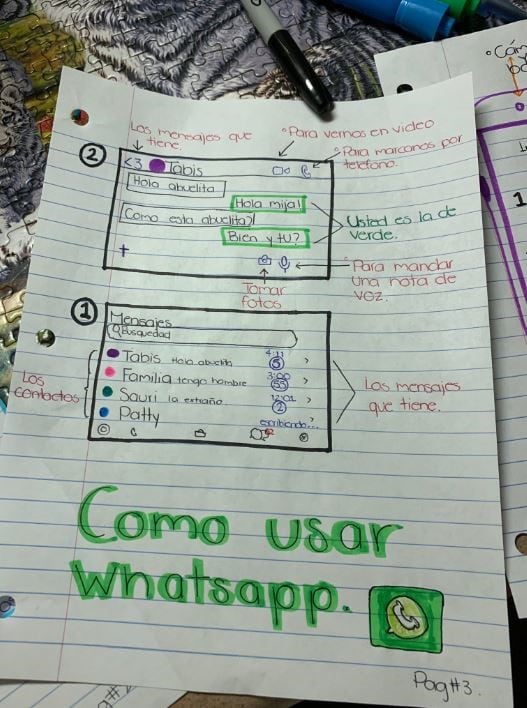 Los mensajes que
tiene.
°Para vernos en video
°Para marcarnos por
telefono.
2
<3 Tabis
Hola abuelita
Hola mija!
Como esta abuelita?
Bien y tu?
Usted es la de
verde.
+
Tomar
fotos
°Para mandar
una nota de
voz.
1
Mensajes
Busquedad
Tabis Hola abuelita 4:11 5 >
Familia tengo hambre 3:00 55 >
Sauri la extraño 12:01 2 >
Patty escribiendo... >
Los
contactos
Los mensajes
que tiene.
Como usar
whatsapp.
Pag#3.
°Cám
1